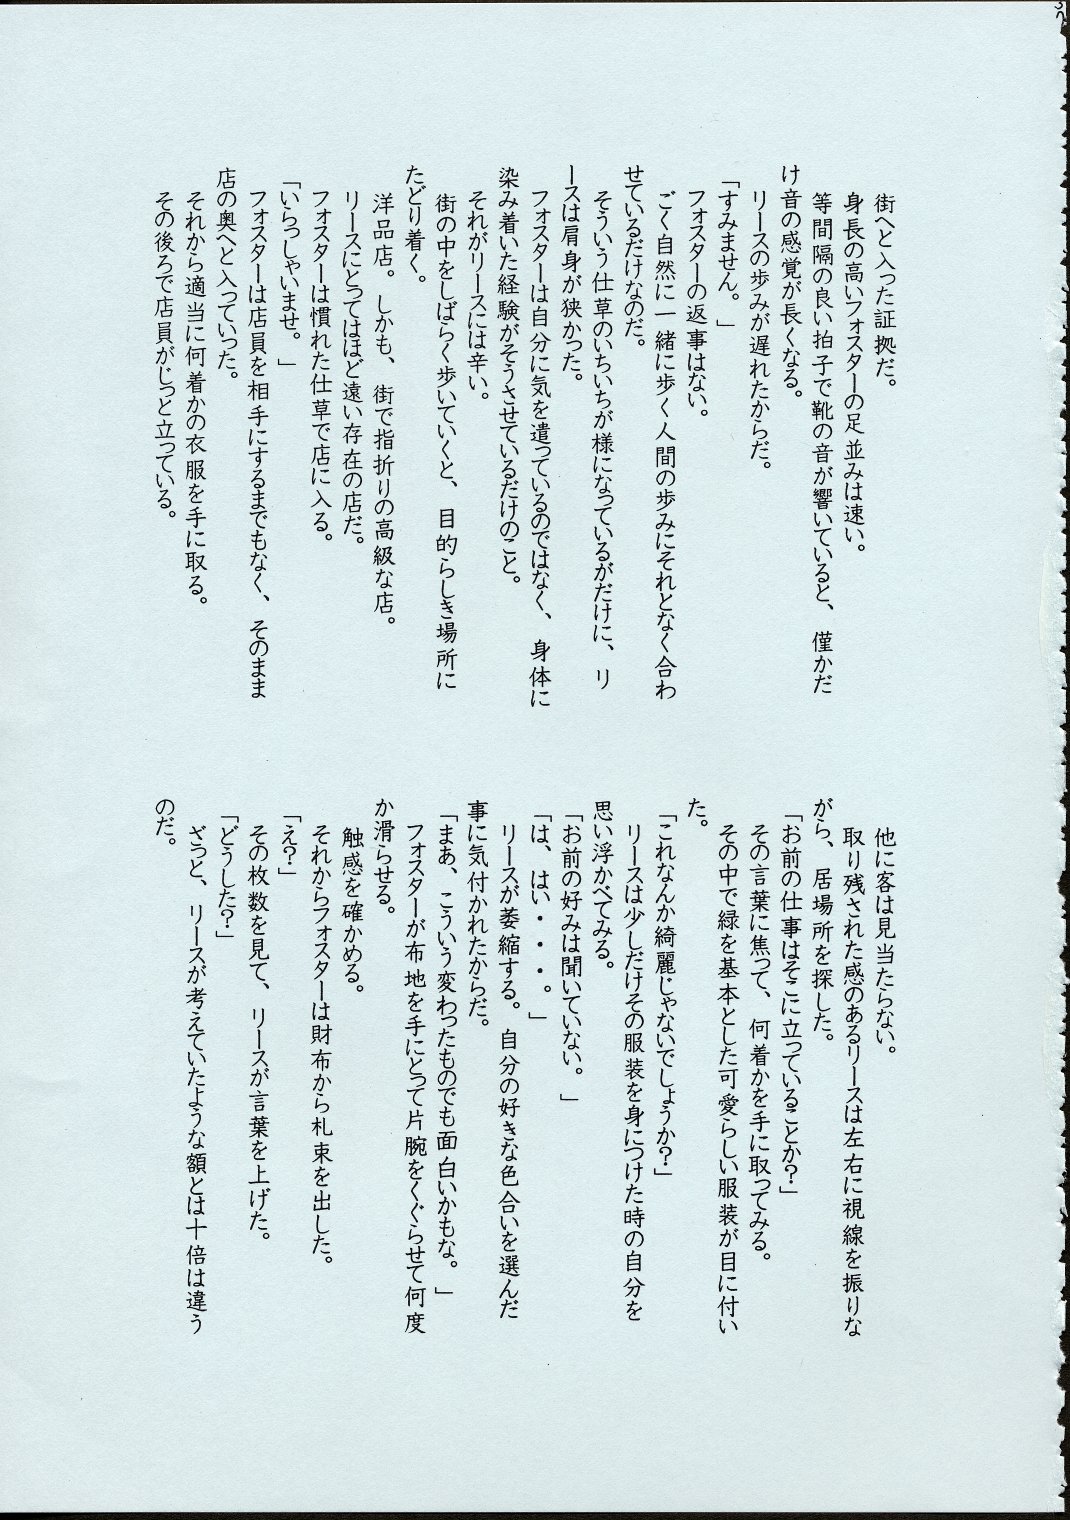 街へと入った証拠だ。
身長の高いフォスターの足並みは速い。
等間隔の良い拍子で靴の音が響いていると、僅かだ
け音の感覚が長くなる。
リースの歩みが遅れたからだ。
「すみません。」
フォスターの返事はない。
ごく自然に一緒に歩く人間の歩みにそれとなく合わ
せているだけなのだ。
そういう仕草のいちいちが様になっているがだけに、リ
ースは肩身が狭かった。
フォスターは自分に気を遣っているのではなく、身体に
染み着いた経験がそうさせているだけのこと。
それがリースには辛い。
街の中をしばらく歩いていくと、目的らしき場所に
たどり着く。
洋品店。しかも、街で指折りの高級な店。
リースにとってはほど遠い存在の店だ。
フォスターは慣れた仕草で店に入る。
「いらっしゃいませ。」
フォスターは店員を相手にするまでもなく、そのまま
店の奥へと入っていった。
それから適当に何着かの衣服を手に取る。
その後ろで店員がじっと立っている。
他に客は見当たらない。
取り残された感のあるリースは左右に視線を振りな
がら、居場所を探した。
「お前の仕事はそこに立っていることか？」
その言葉に焦って、何着かを手に取ってみる。
その中で緑を基本とした可愛らしい服装が目に付い
た。
「これなんか綺麗じゃないでしょうか？」
リースは少しだけその服装を身につけた時の自分を
思い浮かべてみる。
「お前の好みは聞いていない。」
「は、はい・・・。」
リースが萎縮する。自分の好きな色合いを選んだ
事に気付かれたからだ。
「まあ、こういう変わったものでも面白いかもな。」
フォスターが布地を手にとって片腕をくぐらせて何度
か滑らせる。
触感を確かめる。
それからフォスターは財布から札束を出した。
「え？」
その枚数を見て、リースが言葉を上げた。
「どうした？」
ざっと、リースが考えていたような額とは十倍は違う
のだ。